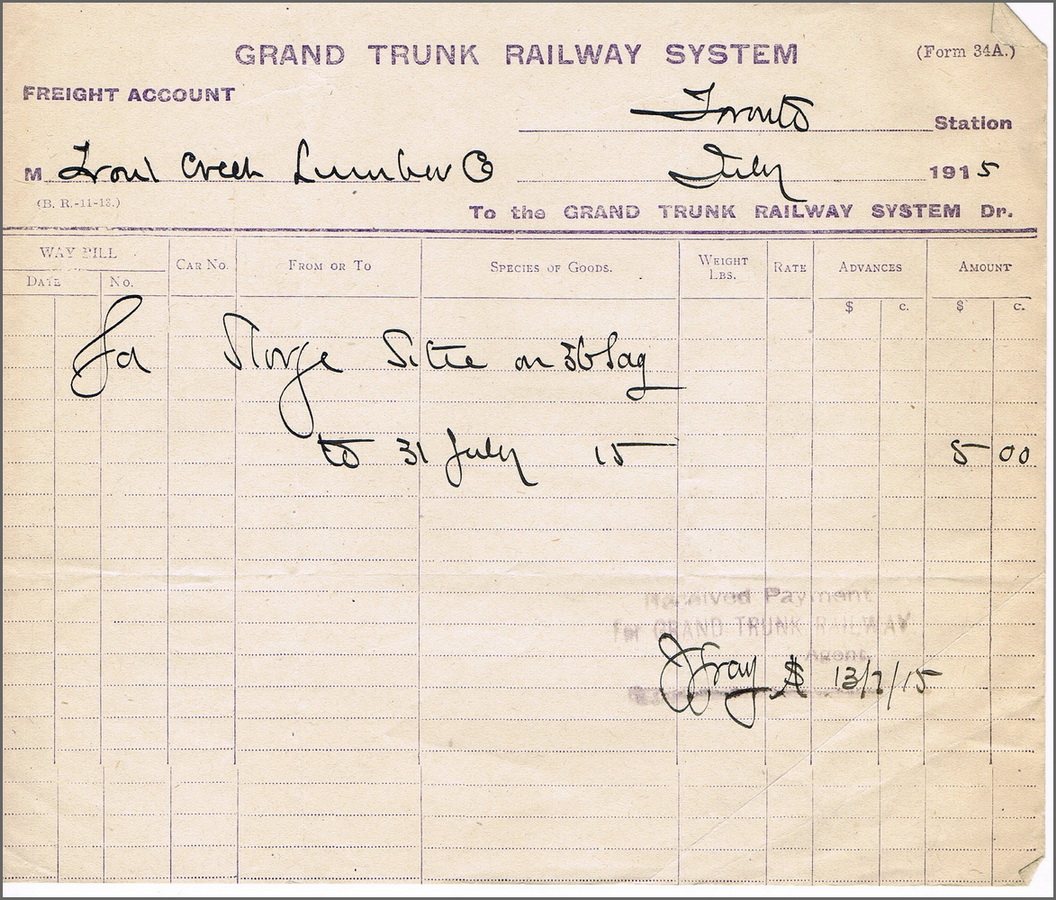 GRAND TRUNK RAILWAY SYSTEM (Form 34A.)
FREIGHT ACCOUNT
Toronto Station
M Trout Creek Lumber Co July 1915
(B. R.-11-13.)
To the GRAND TRUNK RAILWAY SYSTEM Dr.
WAY BILL CAR NO. FROM OR TO SPECIES OF GOODS. WEIGHT LBS. RATE ADVANCES AMOUNT
DATE NO.
$ C. $ C.
on
to 31 July 15 5 00
Received Payment
for GRAND TRUNK RAILWAY
Agent
13/7/15